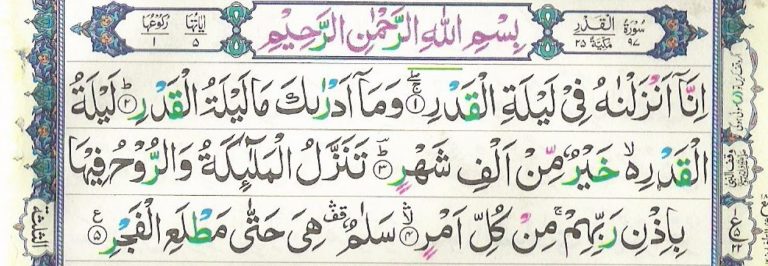 سُورَةُ الْقَدْرِ
٩٧ مَكِّيَّةٌ ٢٥
بِسْمِ اللهِ الرَّحْمٰنِ الرَّحِيْمِ
اٰيَاتُهَا ٥ رُكُوْعُهَا ١
اِنَّاۤ اَنْزَلْنٰهُ فِيْ لَيْلَةِ الْقَدْرِ ۚۖ ﴿۱﴾ وَمَاۤ اَدْرٰىكَ مَا لَيْلَةُ الْقَدْرِ ؕ ﴿۲﴾ لَيْلَةُ
الْقَدْرِ ۙ۬ خَيْرٌ مِّنْ اَلْفِ شَهْرٍ ؕ ﴿۳﴾ تَنَزَّلُ الْمَلٰٓئِكَةُ وَالرُّوْحُ فِيْهَا
بِاِذْنِ رَبِّهِمْ ۚ مِنْ كُلِّ اَمْرٍ ۙۛ ﴿۴﴾ سَلٰمٌ ۛ۟ هِيَ حَتّٰى مَطْلَعِ الْفَجْرِ ﴿۵﴾
الثلثة
ع